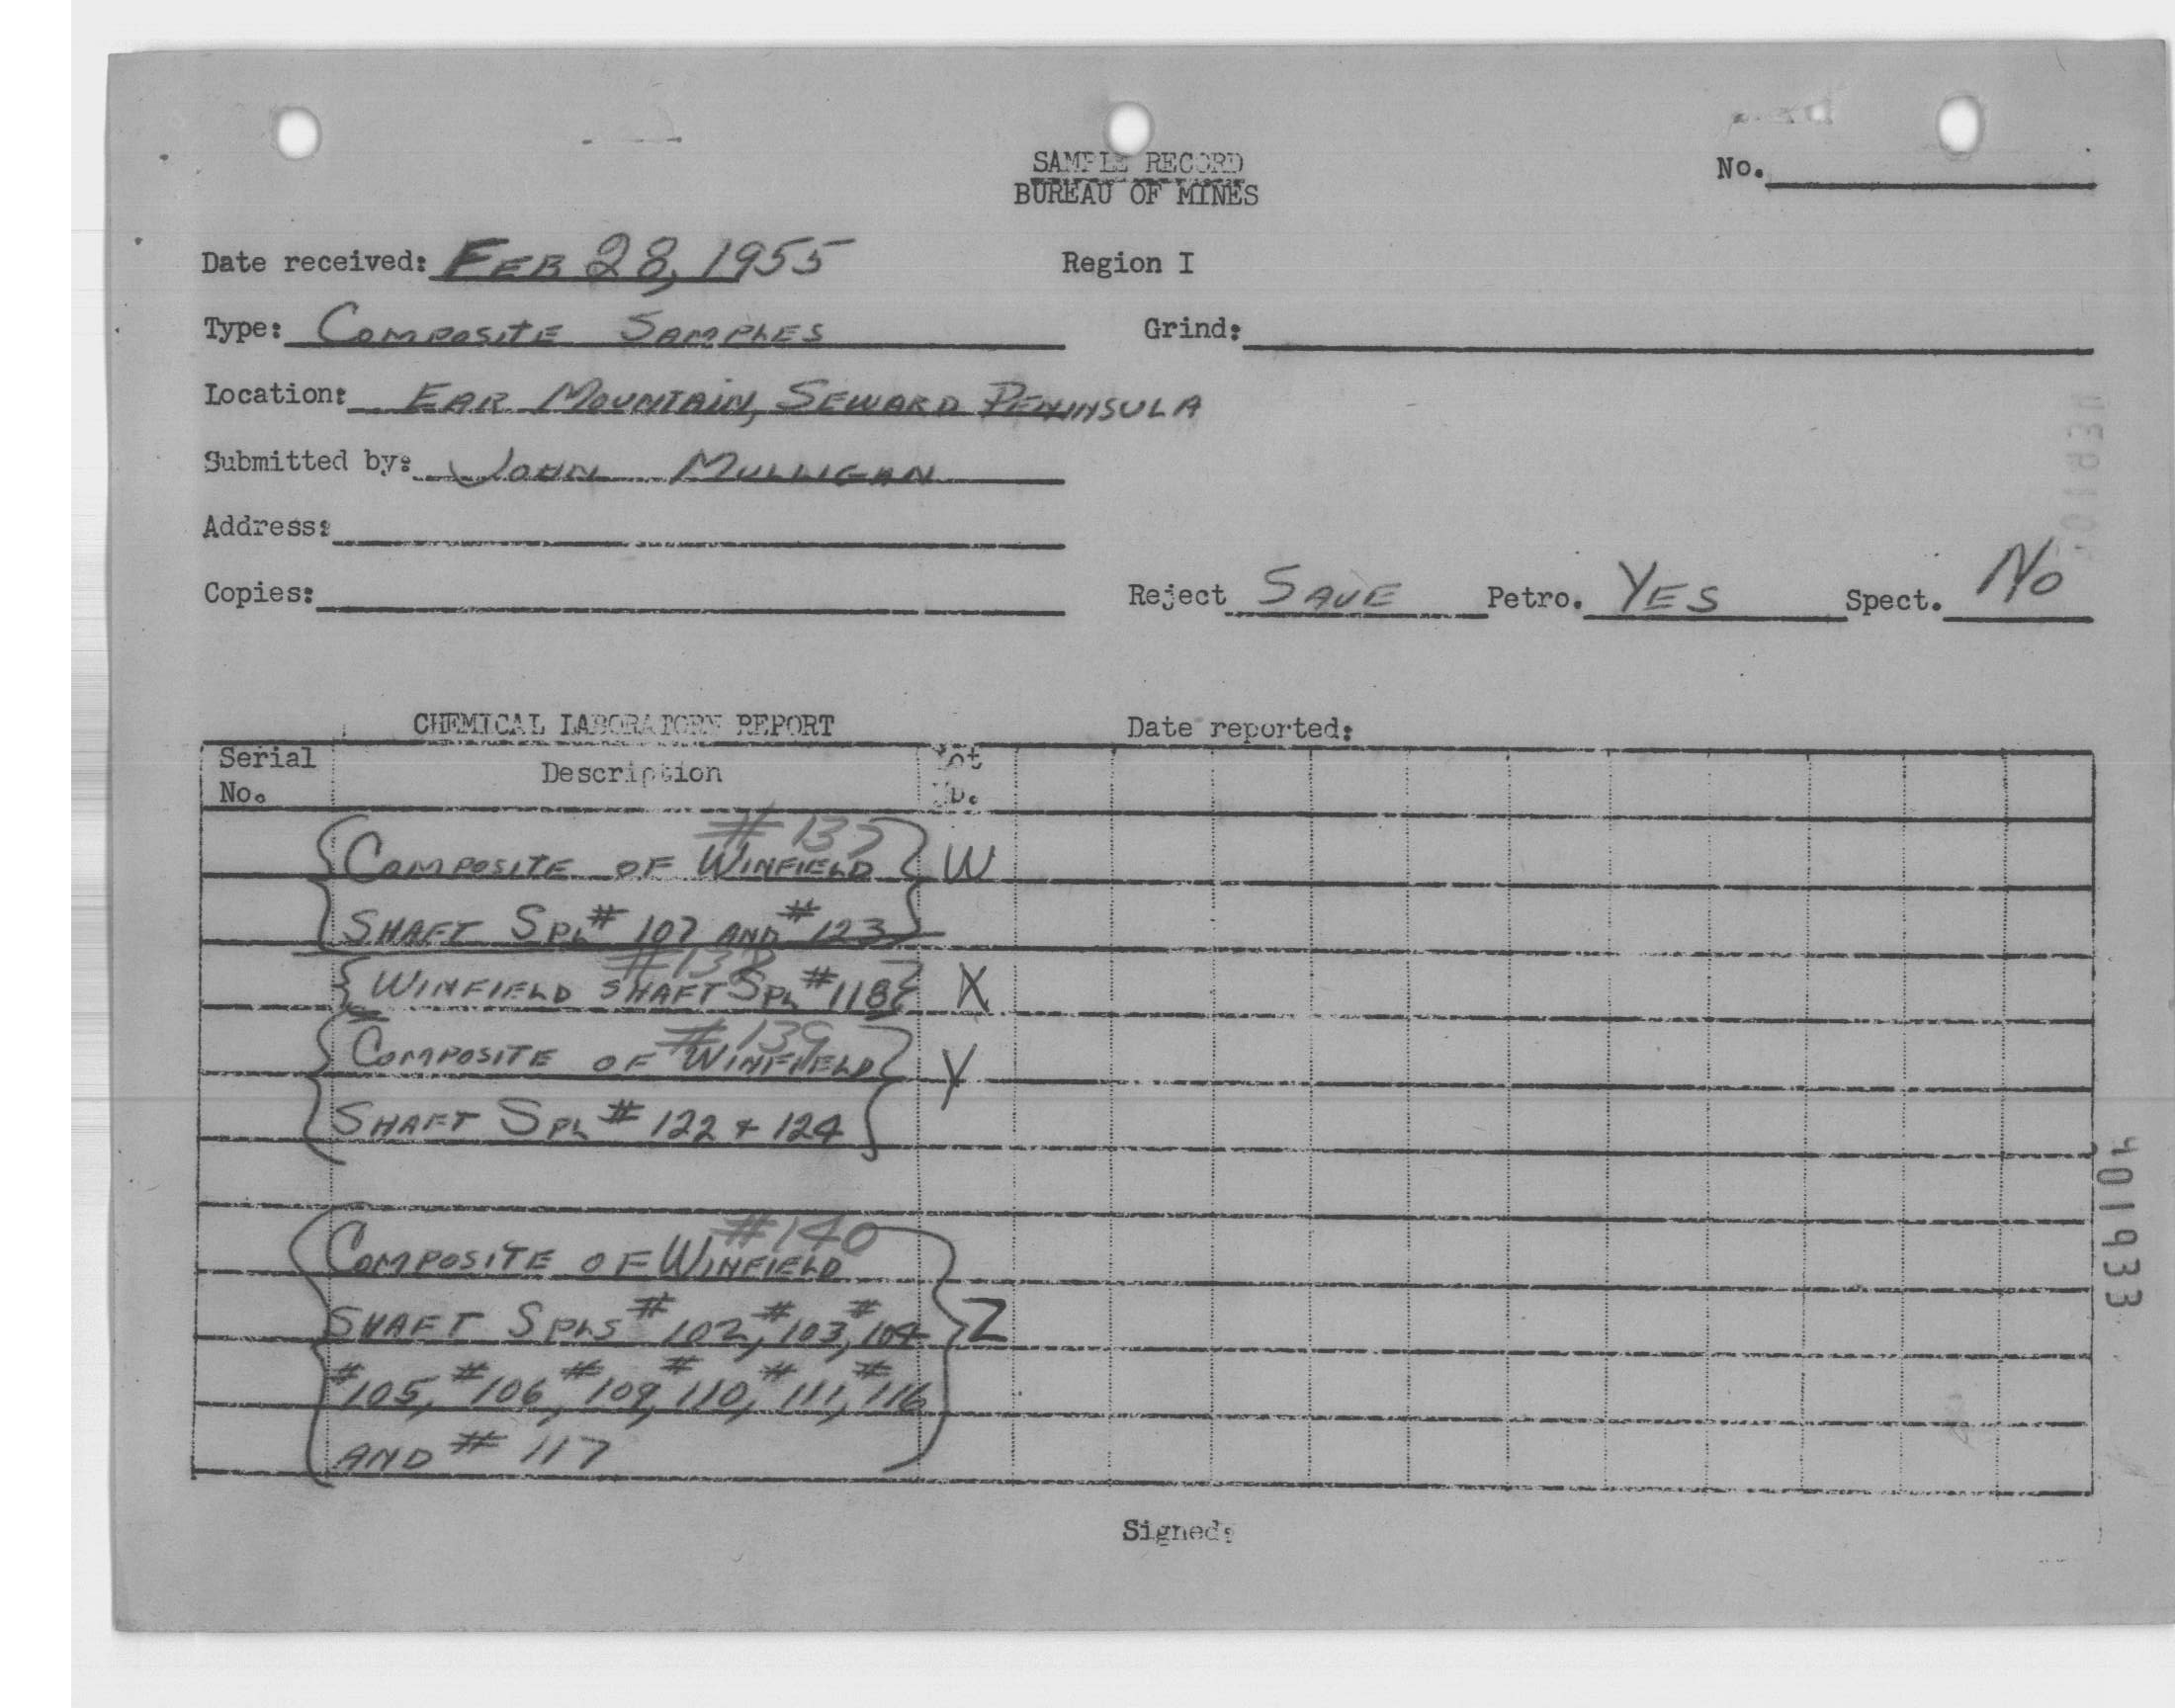 SAMPLE RECORD
BUREAU OF MINES
No.
Date received: FEB 28, 1955
Region I
Type: COMPOSITE SAMPLES
Grind:
Location: EAR MOUNTAIN, SEWARD PENINSULA
Submitted by: JOHN MULLIGAN
Address:
Copies:
Reject SAVE Petro. YES Spect. NO
CHEMICAL LABORATORY REPORT
Date reported:
Serial No.
Description
Lot No.
#137
COMPOSITE OF WINFIELD W
SHAFT SPL # 107 AND # 123
#138
WINFIELD SHAFT SPL #118 X
#139
COMPOSITE OF WINFIELD Y
SHAFT SPL # 122 & 124
#140
COMPOSITE OF WINFIELD
SHAFT SPLS # 102, # 103, # 104 Z
#105, #106, #109, #110, #111, #116
AND # 117
Signed:
401933